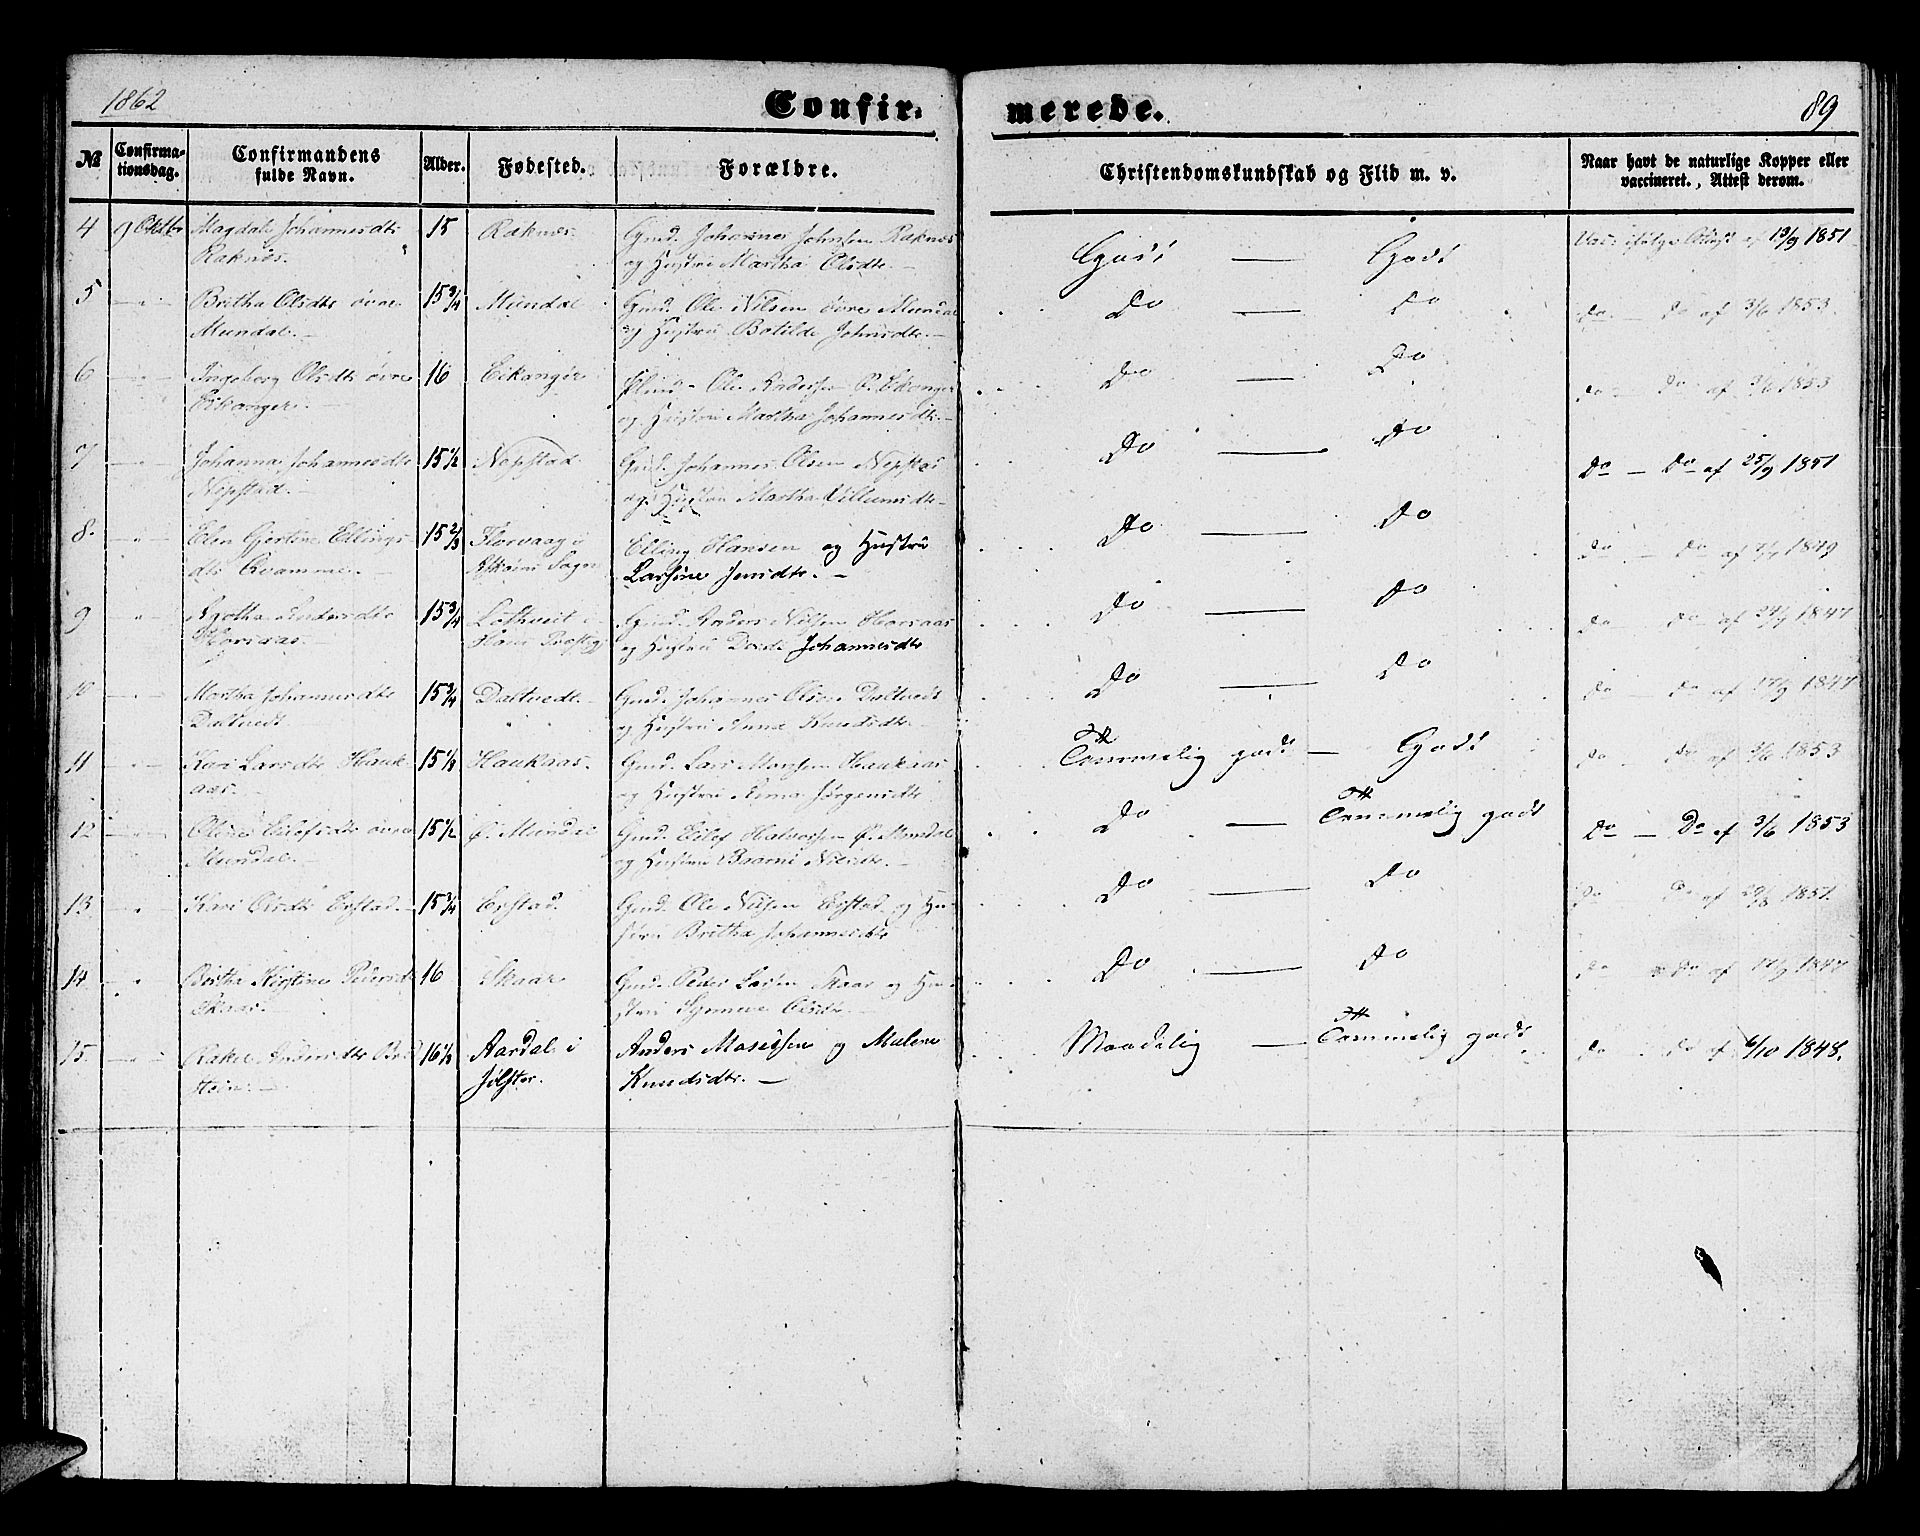 1862
Confir-
merede.
89
№
Confirma-
tionsdag.
Confirmandens
fulde Navn.
Alder.
Fødested.
Forældre.
Christendomskundskab og Flid m. v.
Naar havt de naturlige Kopper eller
vaccineret. , Attest derom.
4 9 Oktbr Magdale Johannesdtr 15 Raknes. Gmd. Johannes Johnsen Raknes
Raknes. og Hustru Martha Olsdtr. —
Godt — Godt
af 13/9 1851
5 — " — Britha Olsdtr øvre 15 3/4 Mundal Gmd. Ole Nilsen øvre Mundal
Mundal. — og Hustru Botilde Johnsdtr. —
Do — Do
Do — Do af 3/6 1853.
6 — " — Ingeborg Olsdtr øvre 16 Eikanger Ole Andersen Ø. Ekanger
Eikanger. — og Hustru Martha Johannesdtr. —
Do — Do
Do — Do af 3/6 1853
7 — " — Johanna Johannesdtr 15 1/2 Nepstad Gmd. Johannes Olsen Nepstad
Nepstad. — og Hustru Martha Villumsdtr —
Do — Do
Do — Do af 25/9 1851
8. " Elen Gjertine Ellings 15 2/3 Florvaag i Elling Hansen og Hustru
dtr Qvamme. — Askøens Sogn Larsine Jensdtr. —
Do — Do
Do Do af 1849
9 " Agatha Andersdtr 15 3/4 Lothveit i Gmd. Anders Nilsen Horsaas
Horsaas. Hous Prestegj og Hustru Dorte Johannesdtr
Do — Do
Do Do af 24/9 1847
10 — " — Martha Johannesdtr 15 3/4 Daltvedt. — Gmd. Johannes Olsen Daltvedt
Daltvedt og Hustru Anna Knudsdtr. —
Do — Do
Do — Do af 17/9 1847
11 — " — Kari Larsdtr Hauk 15 1/3 Haukaas. Gmd. Lars Monsen Haukaas
aas. — og Hustru Anna Jørgensdtr
Temmelig godt — Godt
Do Do af 3/6 1853
12 — " — Eilefsdtr øvre 15 1/2 Ø. Mundal Gmd. Eilef Halvorsen Ø. Mundal
Mundal. — og Hustru Nilsdtr. —
Do — Temmelig godt
Do — Do af 3/6 1853
13 " Kari Olsdtr Eystad. — 15 3/4 Eystad. Gmd. Ole Nilsen Eystad og Hu-
stru Britha Johannesdtr
Do — Do
Do Do af 29/8 1851.
14 " Britha Kirstine Pedersdtr 16 Skaar Gmd. Peder Larsen Skaar og Hu-
Skaar. — stru Synneve Olsdtr. —
Do — Do
Do Do af 17/9 1847
15. — " Rakel Andersdtr 16 1/2 Aardal i Anders Mosessen og Malene
Jølster. Knudsdtr. —
Maadelig — Temmelig godt
Do Do af 6/10 1848.